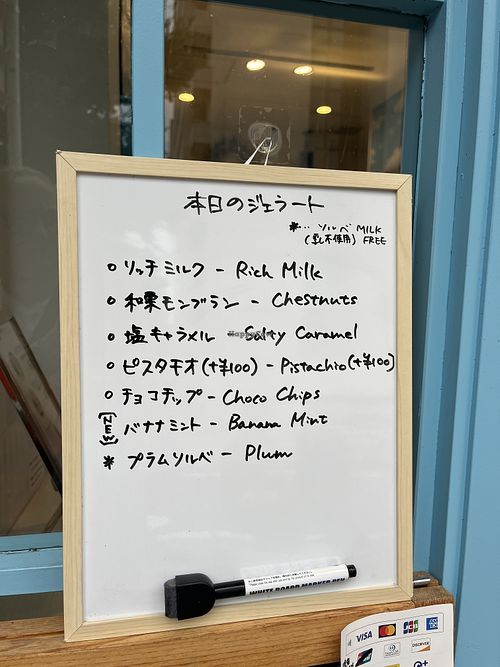 本日のジェラート
*… ソルベ MILK
(乳不使用) FREE
○ リッチミルク - Rich Milk
○ 和栗モンブラン - Chestnuts
○ 塩キャラメル - Salty Caramel
○ ピスタチオ(+¥100) - Pistachio(+¥100)
○ チョコチップ - Choco Chips
[NEW] バナナミント - Banana Mint
* プラムソルベ - Plum
WHITE BOARD MARKER PEN
VISA
JCB
DISCOVER